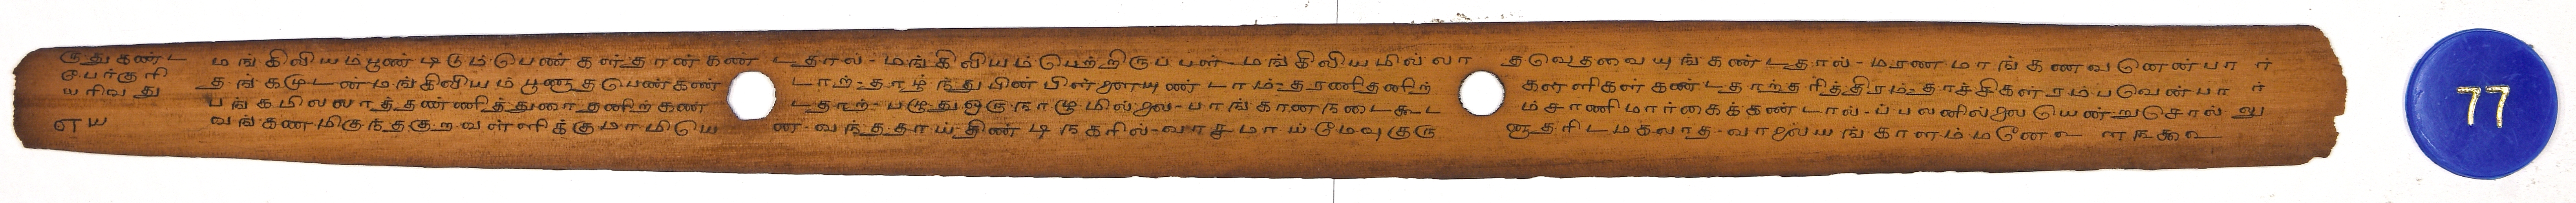 ருதுகண்ட மங்கிலியம்பூண்டிடும்பெண்கள்தான்கண்டதால்-மங்கிலியம்பெற்றிருப்பள்-மங்கிலியமில்லாதவெதவையுங்கண்டதால்-மரணமாங்கணவனென்பார்
சபர்குரி தங்கமுடன்மங்கிலியம்பூணாதபெண்கண்டாற்-தாழ்ந்துபின்பிள்ளையுண்டாம்-தரணிதனிற்கள்ளிகள்கண்டதாற்தரித்திரம்-தாச்சிகள்ரம்பவென்பார்
யறிவது பங்கமில்லாத்தண்ணித்துறைதனிற்கண்டதாற்-பழுதுஒருநாழுமில்லை-பாங்கானநடைகூடம்சாணிமார்கைக்கண்டால்-ப்பலனில்லையென்றுசொல்லு
எய வங்கணமிகுந்தகுறவள்ளிக்குமாமியென-வந்த-தாய்திண்டிநகரில்-வாசமாய்மேவுகுருளாதரிடமகலாத-வாலையங்காளம்மனே௨
77